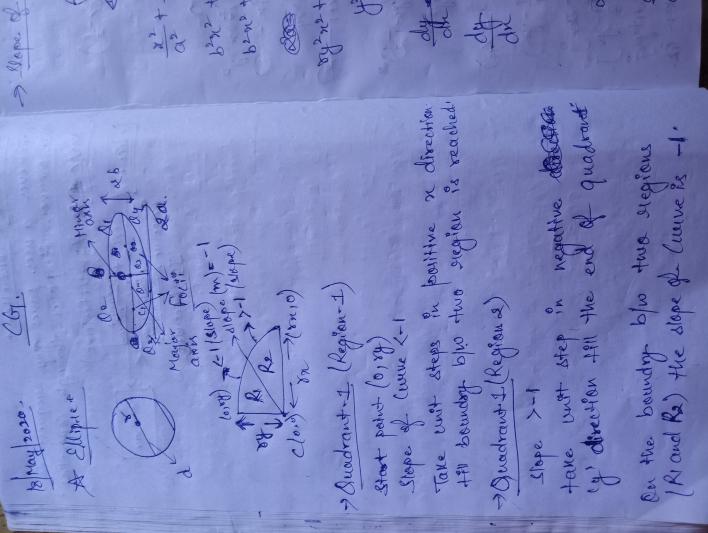 18/May/2020.
CG.
A Ellipse
r
d
Q2
Q1
Q3
Q4
Minor
axis
2b
2a
Major
axis
Focii
(0,ry)
<-1 (slope)
slope (m) = -1
>-1 (slope)
ry
R1
R2
C(0,0)
rx
(rx,0)
→ Quadrant-1 (Region-1)
Start point (0, ry)
Slope of Curve <-1
Take unit steps in positive x direction
till boundry b/w two region is reached.
→ Quadrant-1 (Region 2)
Slope >-1
take unit step in negative
'y' direction till the end of quadrant
On the boundry b/w two regions
(R1 and R2) the slope of Curve is -1.
→ Slope of
x²/a² +
b²x² +
b²x² +
ry²x² +
dy/dx
dy/dx